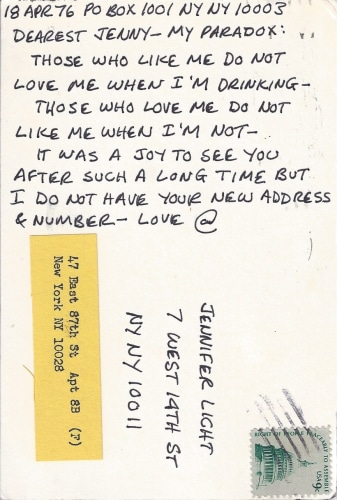 18 APR 76 PO BOX 1001 NY NY 10003
DEAREST JENNY - MY PARADOX:
THOSE WHO LIKE ME DO NOT
LOVE ME WHEN I'M DRINKING -
THOSE WHO LOVE ME DO NOT
LIKE ME WHEN I'M NOT -
IT WAS A JOY TO SEE YOU
AFTER SUCH A LONG TIME BUT
I DO NOT HAVE YOUR NEW ADDRESS
& NUMBER - LOVE @
47 East 87th St Apt 8B (F)
New York NY 10028
JENNIFER LIGHT
7 WEST 14TH ST
NY NY 10011
RIGHT OF PEOPLE PEACEABLY TO ASSEMBLE
USA 9c